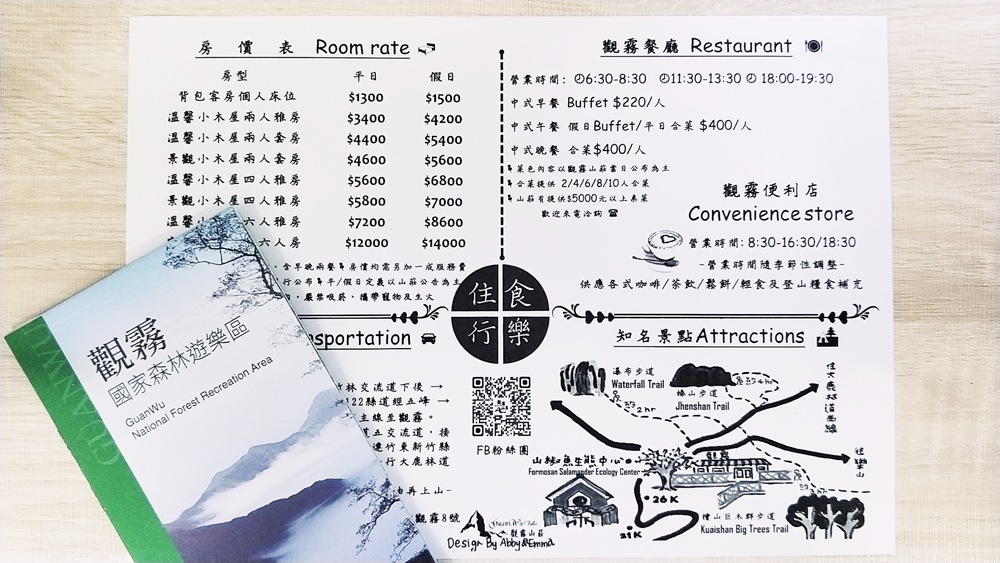 房價表 Room rate
房型 平日 假日
背包客房個人床位 $1300 $1500
溫馨小木屋兩人雅房 $3400 $4200
溫馨小木屋兩人套房 $4400 $5400
景觀小木屋兩人套房 $4600 $5600
溫馨小木屋四人雅房 $5600 $6800
景觀小木屋四人雅房 $5800 $7000
溫馨 六人雅房 $7200 $8600
六人房 $12000 $14000
含早晚兩餐 房價均需另加一成服務費
行公布 平/假日定義以山莊公告為主
嚴禁吸菸，攜帶寵物及生火
觀霧餐廳 Restaurant
營業時間: 6:30-8:30 11:30-13:30 18:00-19:30
中式早餐 Buffet $220/人
中式午餐 假日Buffet/平日合菜 $400/人
中式晚餐 合菜$400/人
菜色內容以觀霧山莊當日公布為主
合菜提供 2/4/6/8/10人合菜
山莊有提供$5000元以上桌菜
歡迎來電洽詢
觀霧便利店
Convenience store
營業時間: 8:30-16:30/18:30
-營業時間隨季節性調整-
供應各式咖啡/茶飲/鬆餅/輕食及登山糧食補充
住食
行樂
sportation
竹林交流道下後 →
122縣道經五峰 →
主線至觀霧。
五交流道，接
連竹東新竹縣
行大鹿林道
由再上山-
觀霧8號
FB粉絲團
知名景點Attractions
瀑布步道
Waterfall Trail
榛山步道
Jhenshan Trail
往大鹿林道西線
往樂山
山椒魚生態中心
Formosan Salamander Ecology Center
26K
21K
檜山巨木群步道
Kuaishan Big Trees Trail
GuanWu
觀霧山莊
Design By Abby&Emma
GUANWU
觀霧
國家森林遊樂區
GuanWu
National Forest Recreation Area